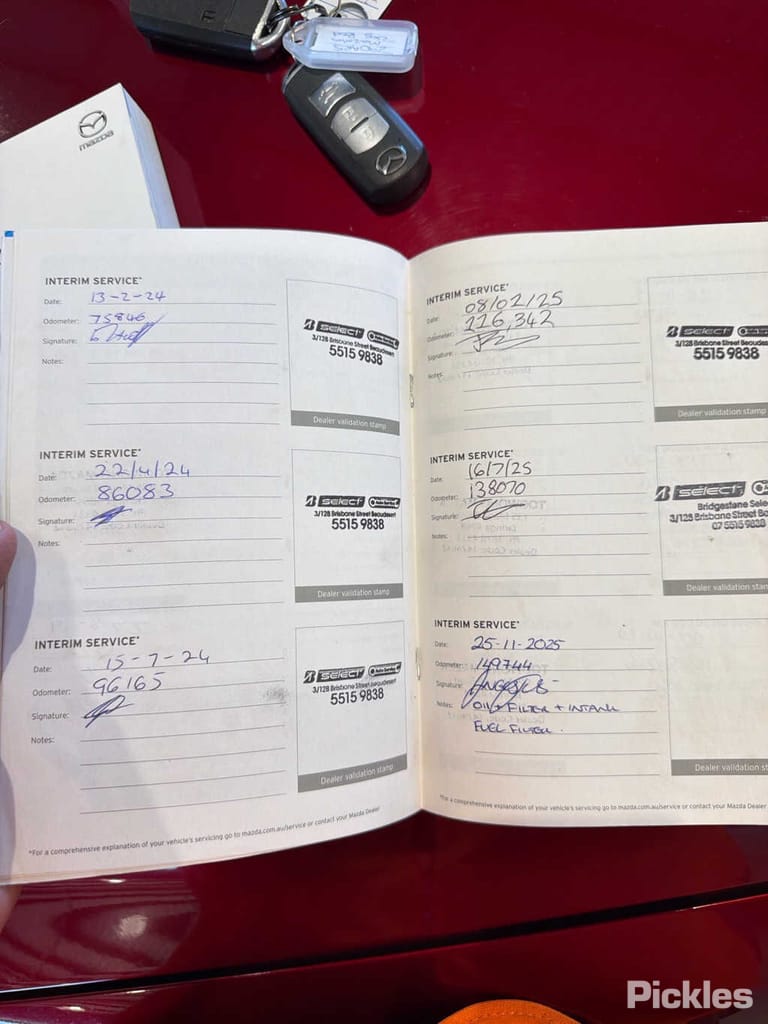 mazda
INTERIM SERVICE*
Date: 13-2-24
Odometer: 75846
Signature:
Notes:
SELECT
3/128 Brisbane Street Beaudesert
5515 9838
Dealer validation stamp
INTERIM SERVICE*
Date: 22/4/24
Odometer: 86083
Signature:
Notes:
SELECT
3/128 Brisbane Street Beaudesert
5515 9838
Dealer validation stamp
INTERIM SERVICE*
Date: 15-7-24
Odometer: 96165
Signature:
Notes:
SELECT
3/128 Brisbane Street Beaudesert
5515 9838
Dealer validation stamp
*For a comprehensive explanation of your vehicle's servicing go to mazda.com.au/service or contact your Mazda Dealer
INTERIM SERVICE*
Date: 08/02/25
Odometer: 116,342
Signature:
Notes:
SELECT
3/128 Brisbane Street Beaudes
5515 9838
Dealer validation stamp
INTERIM SERVICE*
Date: 16/7/25
Odometer: 138070
Signature:
Notes:
SELECT
Bridgestone Sele
3/128 Brisbane Street Be
07 5515 9838
Dealer validation sta
INTERIM SERVICE*
Date: 25-11-2025
Odometer: 149744
Signature:
Notes: OIL + FILTER + INTANK
FUEL FILTER.
Dealer validation st
*For a comprehensive explanation of your vehicle's servicing go to mazda.com.au/service or contact your Mazda Dealer
Pickles